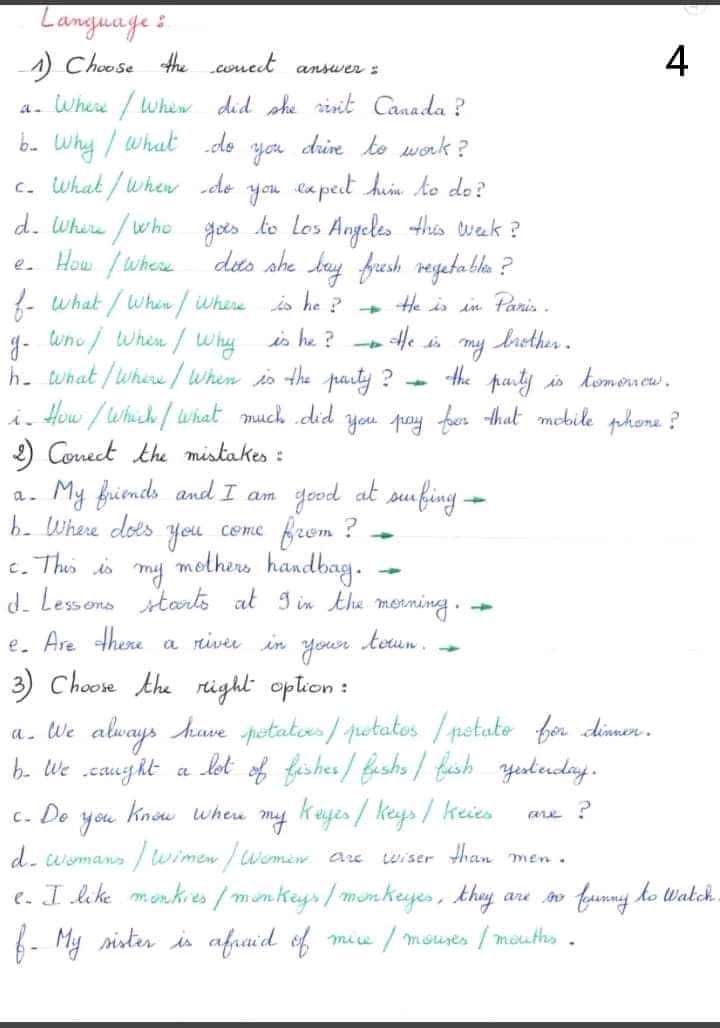 Language :
4
1) Choose the correct answer :
a- Where / When did she visit Canada ?
b- Why / What do you drive to work ?
c- What / When do you expect him to do ?
d- Where / who goes to Los Angeles this week ?
e- How / Where does she buy fresh vegetables ?
f- What / When / Where is he ? → He is in Paris .
g- Who / When / Why is he ? → He is my brother .
h- What / Where / When is the party ? → the party is tomorrow .
i- How / Which / What much did you pay for that mobile phone ?
2) Correct the mistakes :
a- My friends and I am good at surfing →
b- Where does you come from ? →
c- This is my mothers handbag. →
d- Lessons starts at 9 in the morning. →
e- Are there a river in your town. →
3) Choose the right option :
a- We always have potatoes / potatos / potato for dinner .
b- We caught a lot of fishes / fishs / fish yesterday .
c- Do you know where my keyes / keys / keies are ?
d- womans / wimen / women are wiser than men .
e- I like monkies / monkeys / monkeyes, they are so funny to watch.
f- My sister is afraid of mice / mouses / mouths .